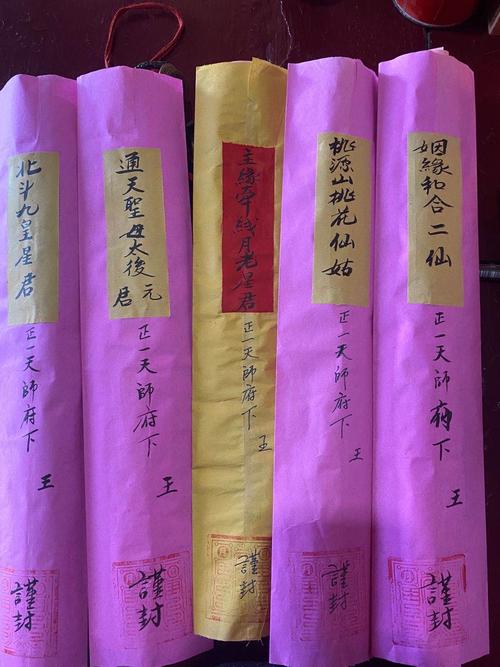 北斗九皇星君
正一天師府下
王
謹封
通天聖母太後元
君
正一天師府下
王
謹封
主緣牽线月老星君
正一天師府下
王
謹封
桃源山桃花仙姑
正一天師府下
王
謹封
姻緣和合二仙
正一天師府下
王
謹封